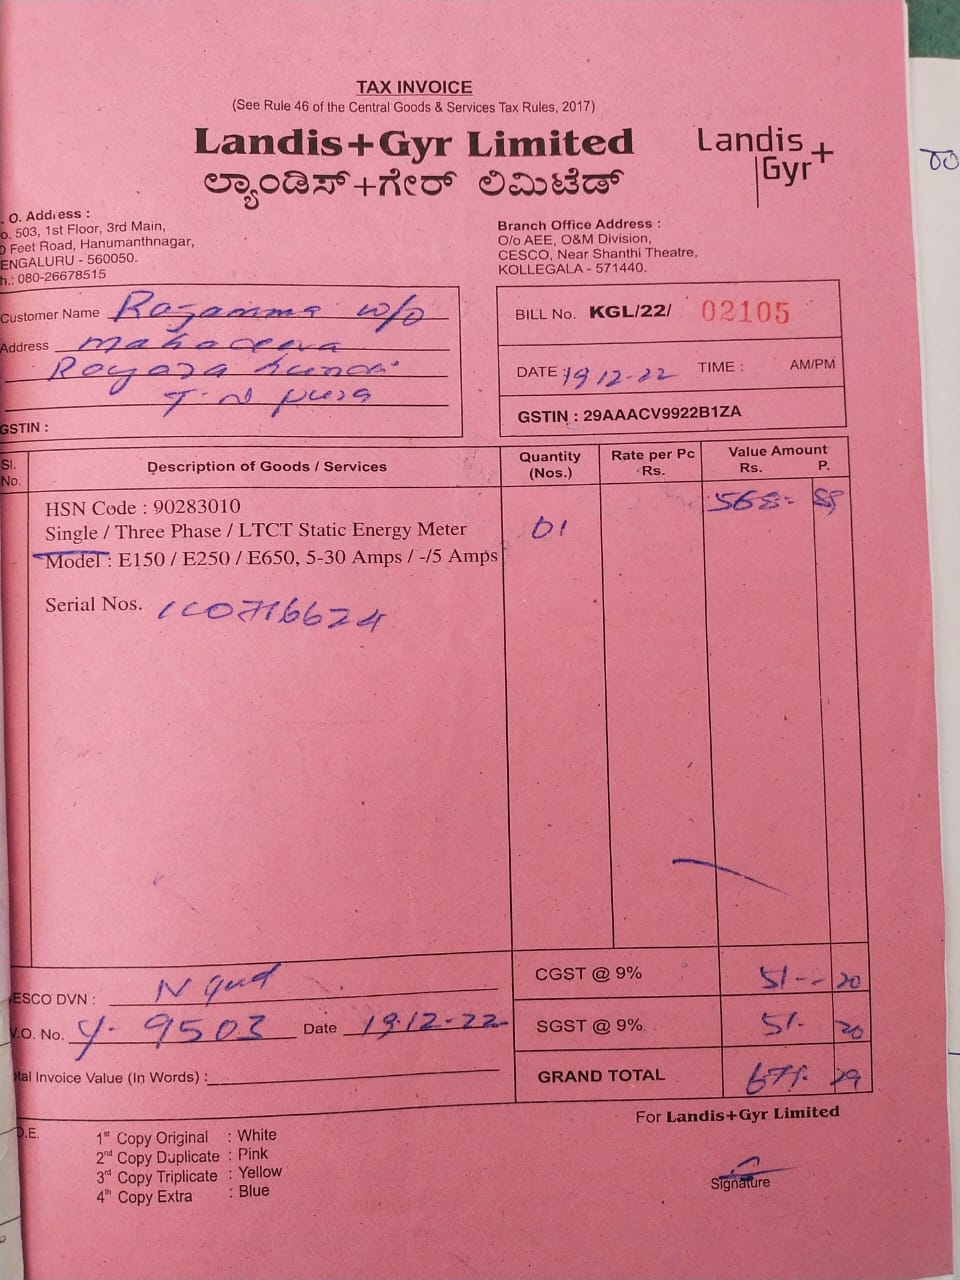 TAX INVOICE
(See Rule 46 of the Central Goods & Services Tax Rules, 2017)
Landis+Gyr Limited
ಲ್ಯಾಂಡಿಸ್+ಗೇರ್ ಲಿಮಿಟೆಡ್
Landis
Gyr+
. O. Address :
o. 503, 1st Floor, 3rd Main,
0 Feet Road, Hanumanthnagar,
ENGALURU - 560050.
h.: 080-26678515
Branch Office Address :
O/o AEE, O&M Division,
CESCO, Near Shanthi Theatre,
KOLLEGALA - 571440.
Customer Name Rajamma w/o
Address mahadeva
T-N pura
GSTIN :
BILL No. KGL/22/ 02105
DATE 19 12-22 TIME : AM/PM
GSTIN : 29AAACV9922B1ZA
Sl. No. Description of Goods / Services Quantity (Nos.) Rate per Pc Rs. Value Amount Rs. P.
HSN Code : 90283010 568-
Single / Three Phase / LTCT Static Energy Meter 01
Model : E150 / E250 / E650, 5-30 Amps / -/5 Amps
Serial Nos.
CGST @ 9% 51-- 20
ESCO DVN : N
.O. No. Y- 9503 Date 19-12-22
SGST @ 9% 51- 20
tal Invoice Value (In Words) :
GRAND TOTAL 671- 29
For Landis+Gyr Limited
O.E.
1st Copy Original : White
2nd Copy Duplicate : Pink
3rd Copy Triplicate : Yellow
4th Copy Extra : Blue
Signature